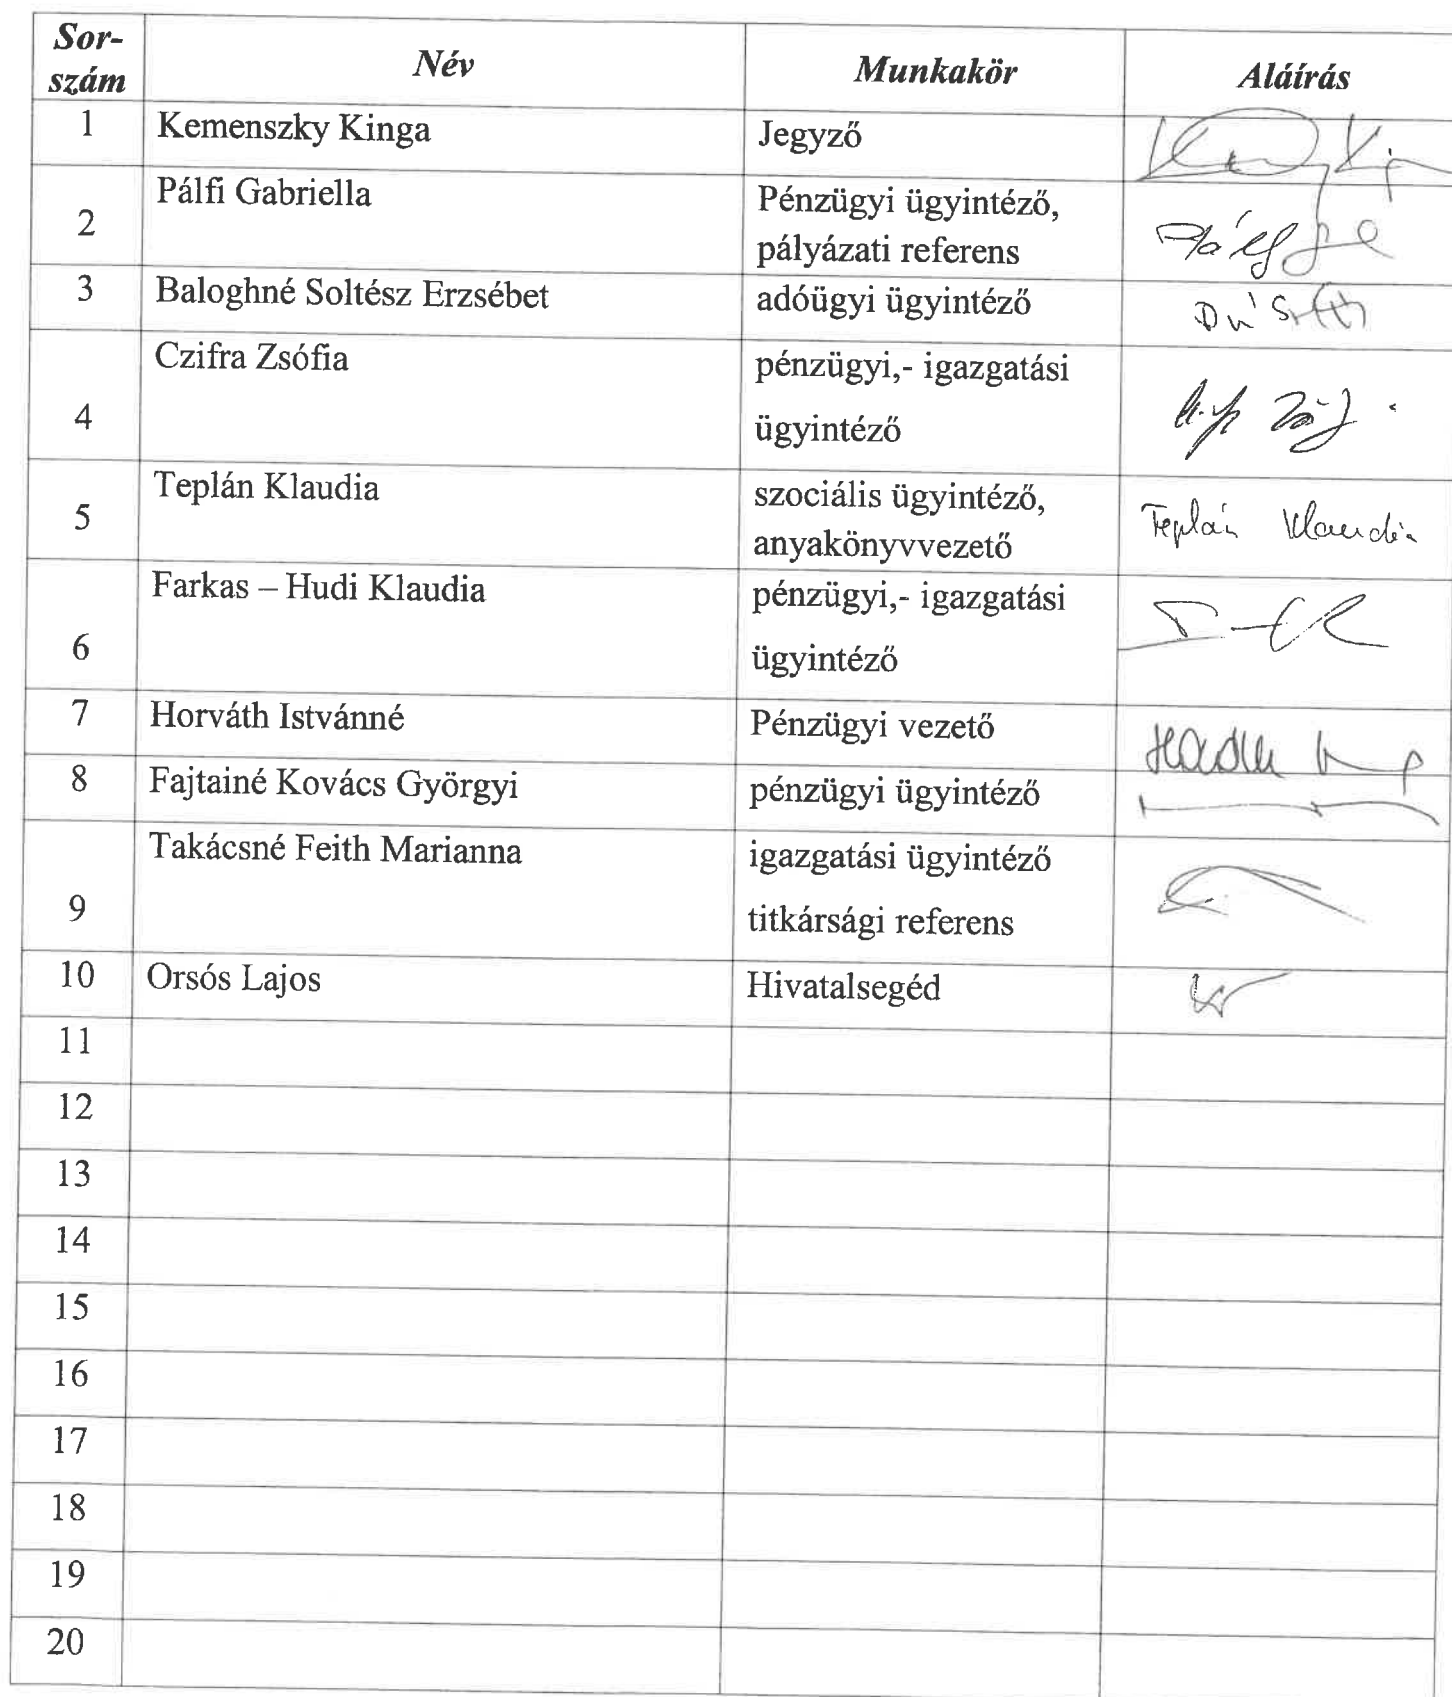 Sor-
szám Név Munkakör Aláírás
1 Kemenszky Kinga Jegyző
2 Pálfi Gabriella Pénzügyi ügyintéző,
pályázati referens
3 Baloghné Soltész Erzsébet adóügyi ügyintéző
4 Czifra Zsófia pénzügyi,- igazgatási
ügyintéző
5 Teplán Klaudia szociális ügyintéző, Teplán Klaudia
anyakönyvvezető
6 Farkas – Hudi Klaudia pénzügyi,- igazgatási
ügyintéző
7 Horváth Istvánné Pénzügyi vezető
8 Fajtainé Kovács Györgyi pénzügyi ügyintéző
9 Takácsné Feith Marianna igazgatási ügyintéző
titkársági referens
10 Orsós Lajos Hivatalsegéd
11
12
13
14
15
16
17
18
19
20